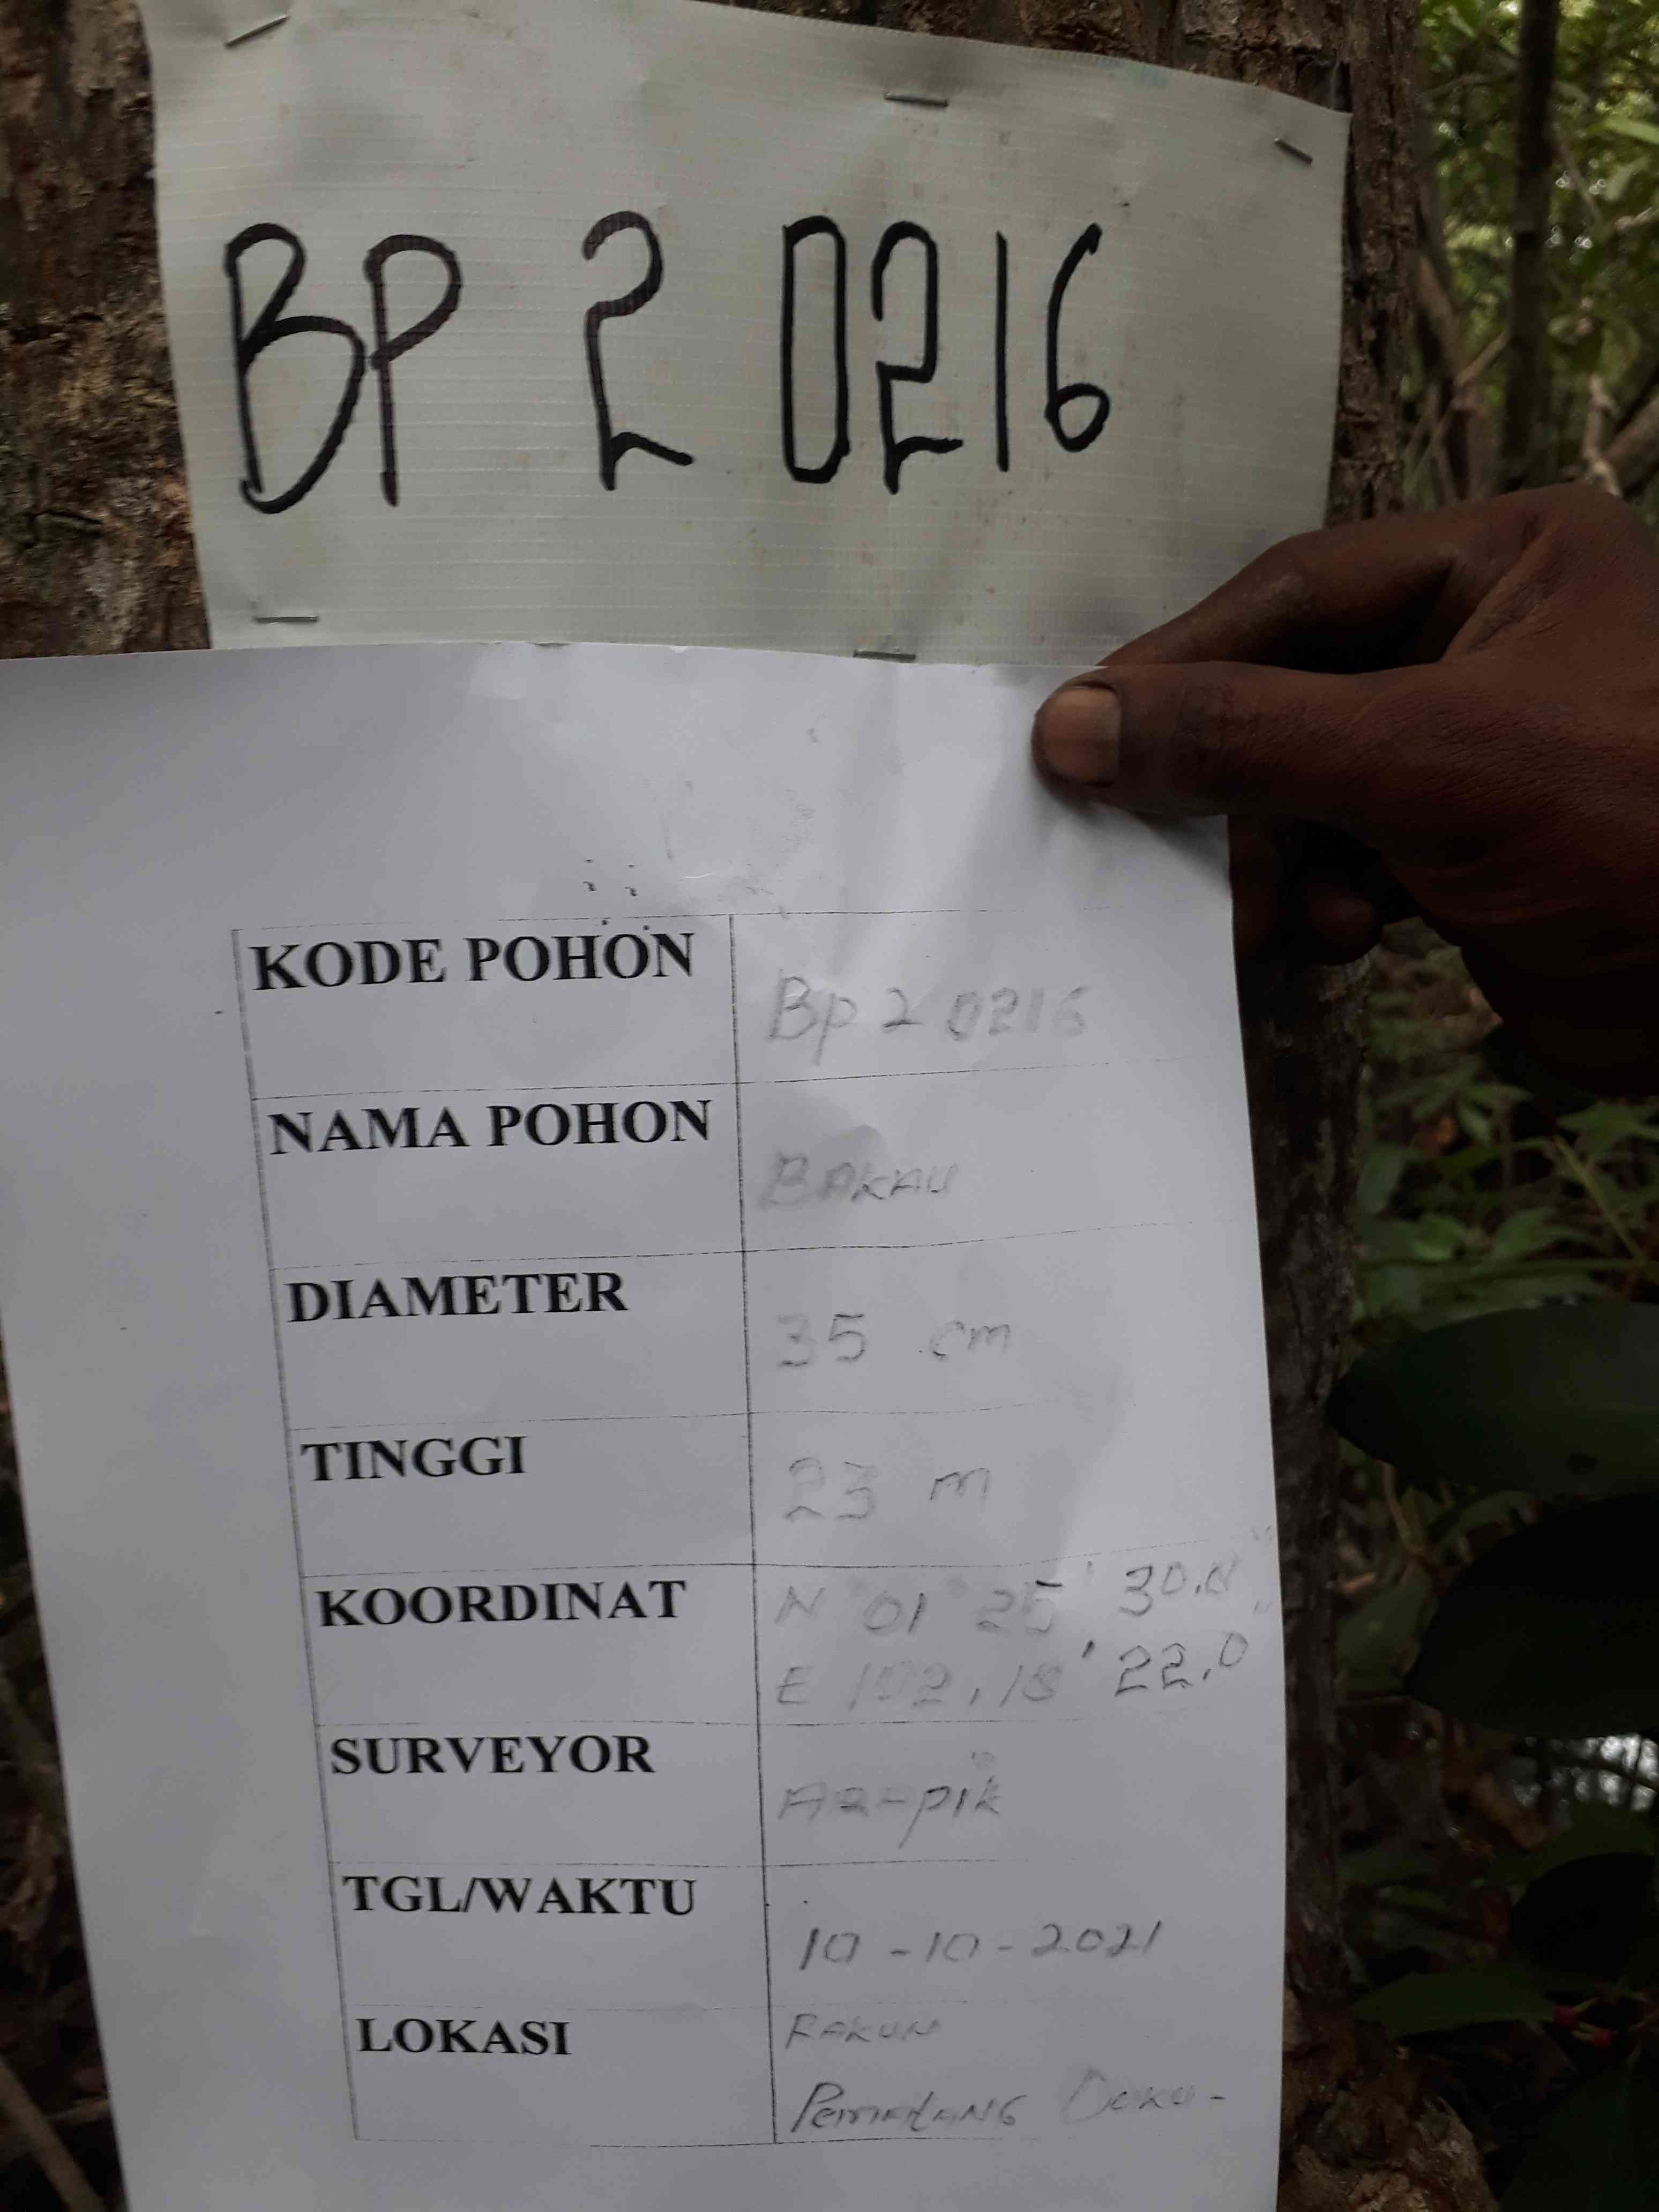 BP 2 0216
KODE POHON Bp 2 0216
NAMA POHON BAKAU
DIAMETER 35 cm
TINGGI 23 m
KOORDINAT N 01° 25' 
E 102. 18' 22.0"
SURVEYOR
TGL/WAKTU 10-10-2021
LOKASI